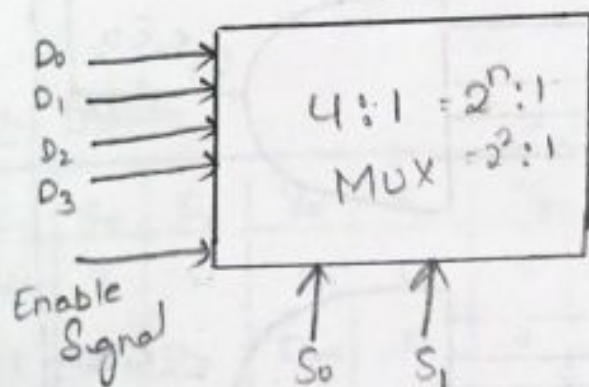 D0
D1
D2
D3
4:1 = 2^n:1
MUX = 2^2:1
Enable
Signal
S0 S1